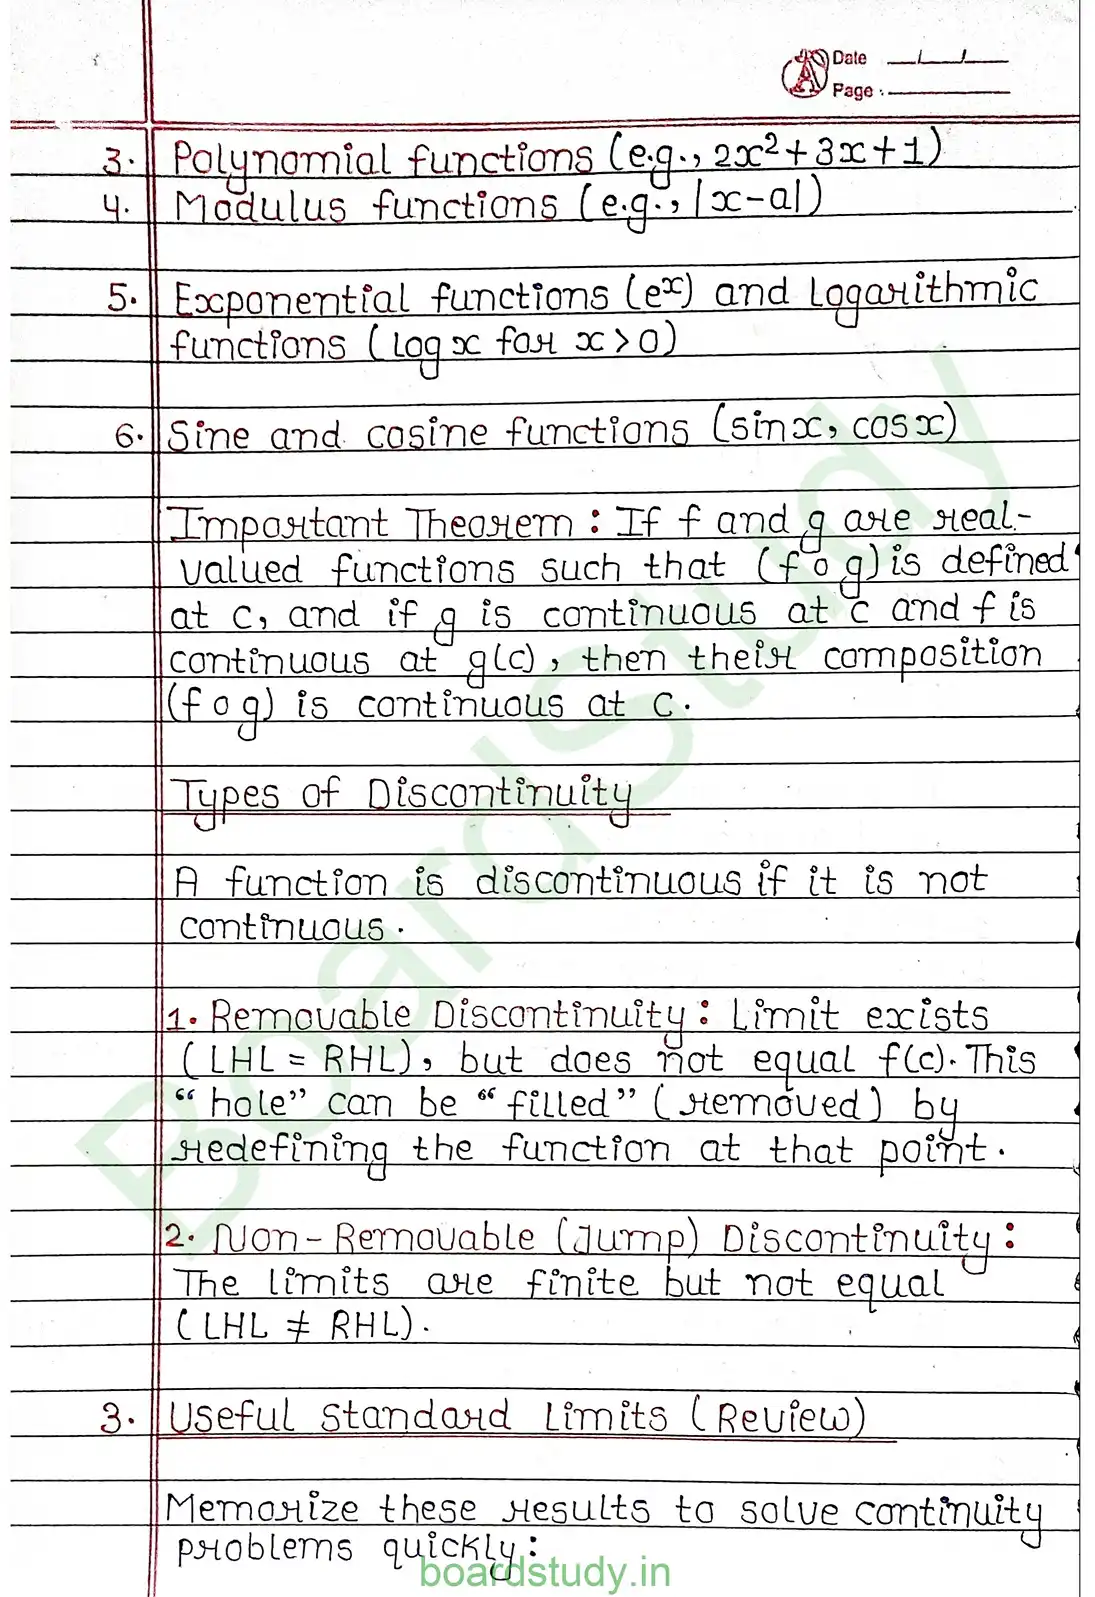 Date
Page :
3. Polynomial functions (e.g., 2x²+3x+1)
4. Modulus functions (e.g., |x-a|)
5. Exponential functions (eˣ) and Logarithmic
functions (log x for x>0)
6. Sine and cosine functions (sinx, cosx)
Important Theorem : If f and g are real-
valued functions such that (f o g) is defined
at c, and if g is continuous at c and f is
continuous at g(c), then their composition
(f o g) is continuous at c.
Types of Discontinuity
A function is discontinuous if it is not
continuous.
1. Removable Discontinuity : Limit exists
(LHL = RHL), but does not equal f(c). This
“hole” can be “filled” (removed) by
redefining the function at that point.
2. Non-Removable (Jump) Discontinuity :
The limits are finite but not equal
(LHL ≠ RHL).
3. Useful Standard Limits (Review)
Memorize these results to solve continuity
problems quickly :
BoardStudy
boardstudy.in